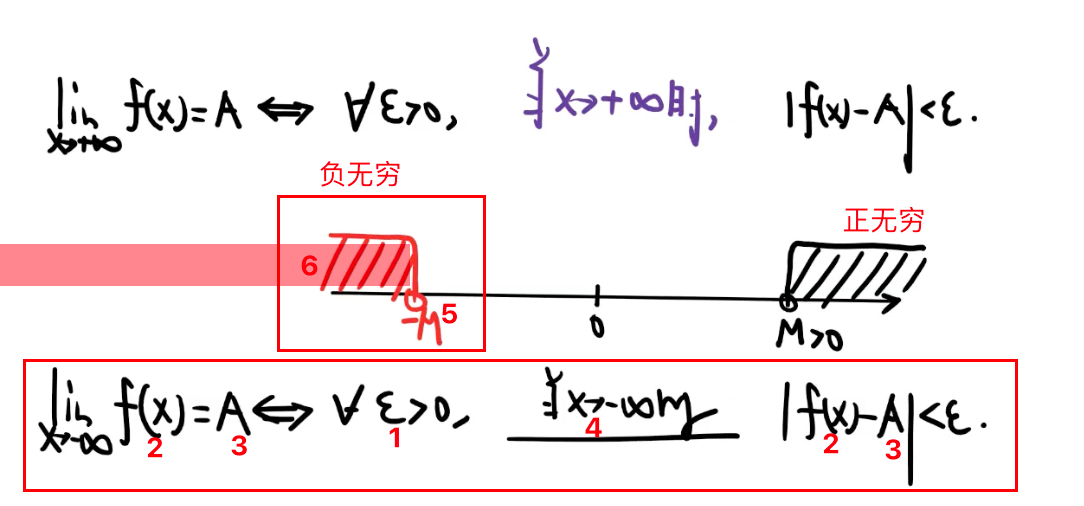 lim x→+∞ f(x)=A ⇔ ∀ε>0, 当x→+∞时, |f(x)-A|<ε.
负无穷
正无穷
6
-M 5 0 M>0
lim x→-∞ f(x)=A ⇔ ∀ε>0, 当x→-∞时 |f(x)-A|<ε.
2 3 1 4 2 3